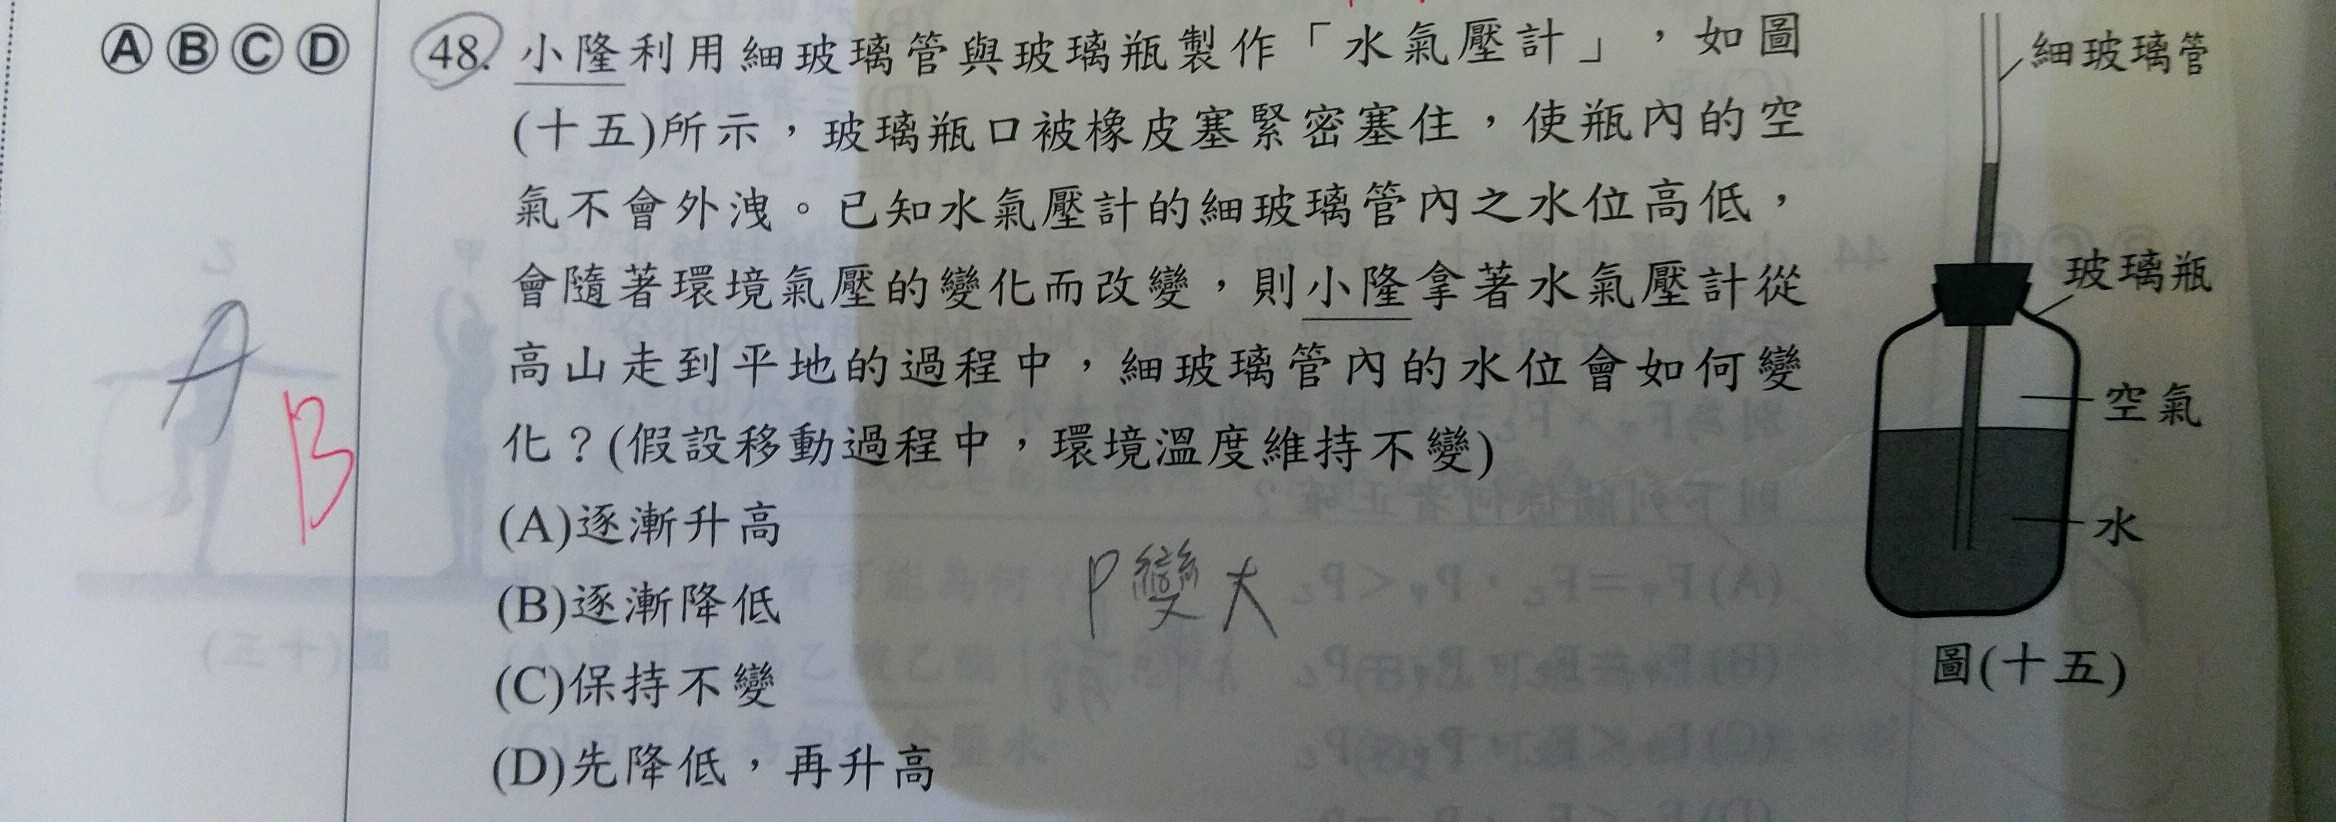 Ⓐ Ⓑ Ⓒ Ⓓ
48. 小隆利用細玻璃管與玻璃瓶製作「水氣壓計」，如圖
(十五)所示，玻璃瓶口被橡皮塞緊密塞住，使瓶內的空
氣不會外洩。已知水氣壓計的細玻璃管內之水位高低，
會隨著環境氣壓的變化而改變，則小隆拿著水氣壓計從
高山走到平地的過程中，細玻璃管內的水位會如何變
化？(假設移動過程中，環境溫度維持不變)
(A)逐漸升高
(B)逐漸降低
(C)保持不變
(D)先降低，再升高
A
B
P變大
細玻璃管
玻璃瓶
空氣
水
圖(十五)